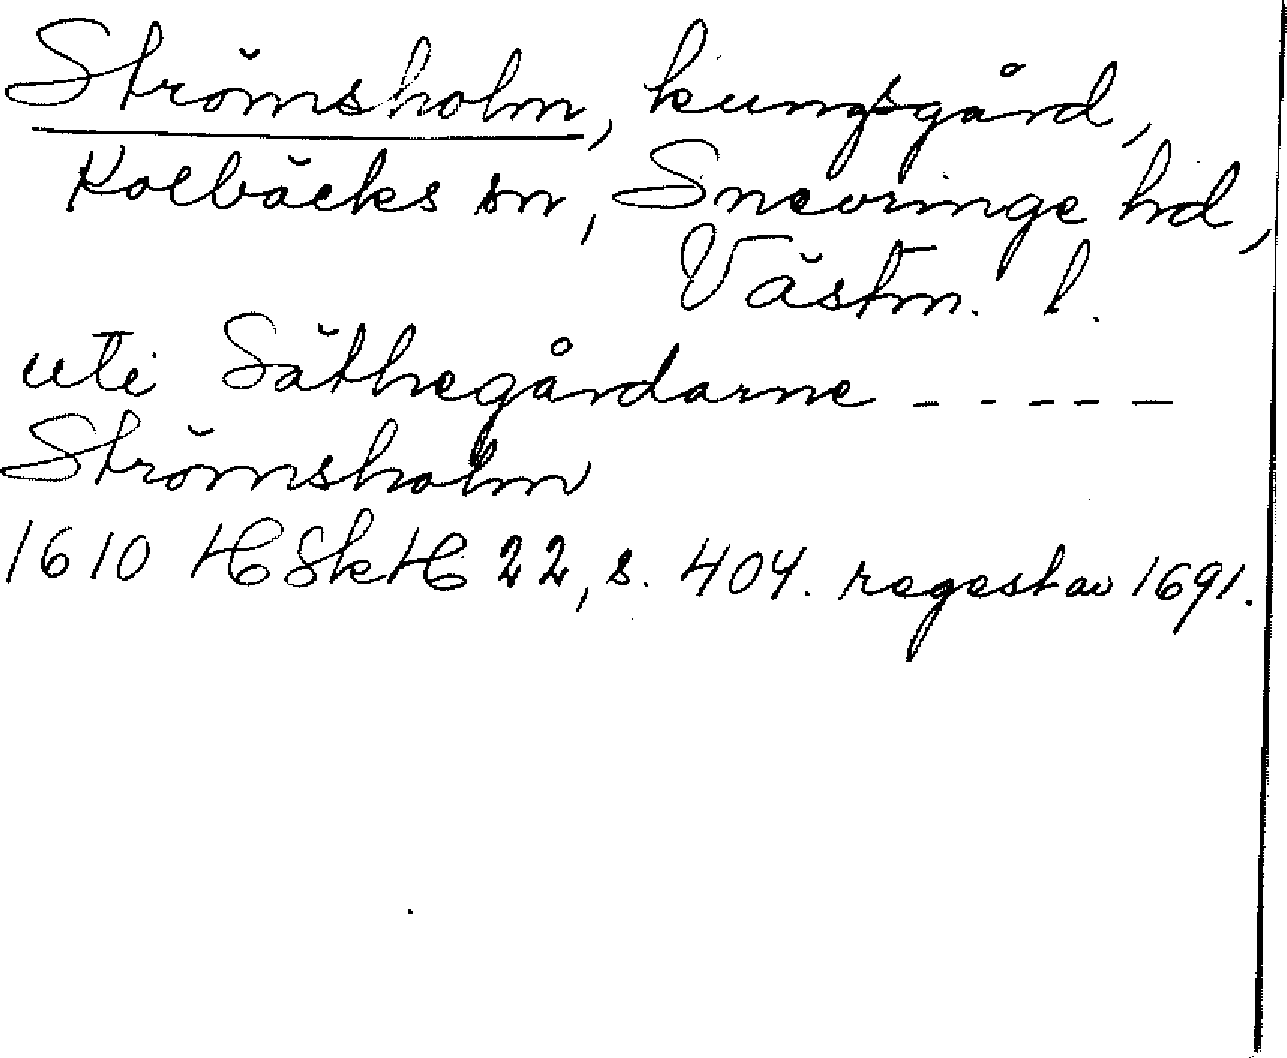 Strömsholm, kungsgård,
Kolbäcks sn, Snevringe hd,
Västm. l.
uti Säthegårdarne - - - - -
Strömsholm
1610 HSkH 22, s. 404. regest av 1691.